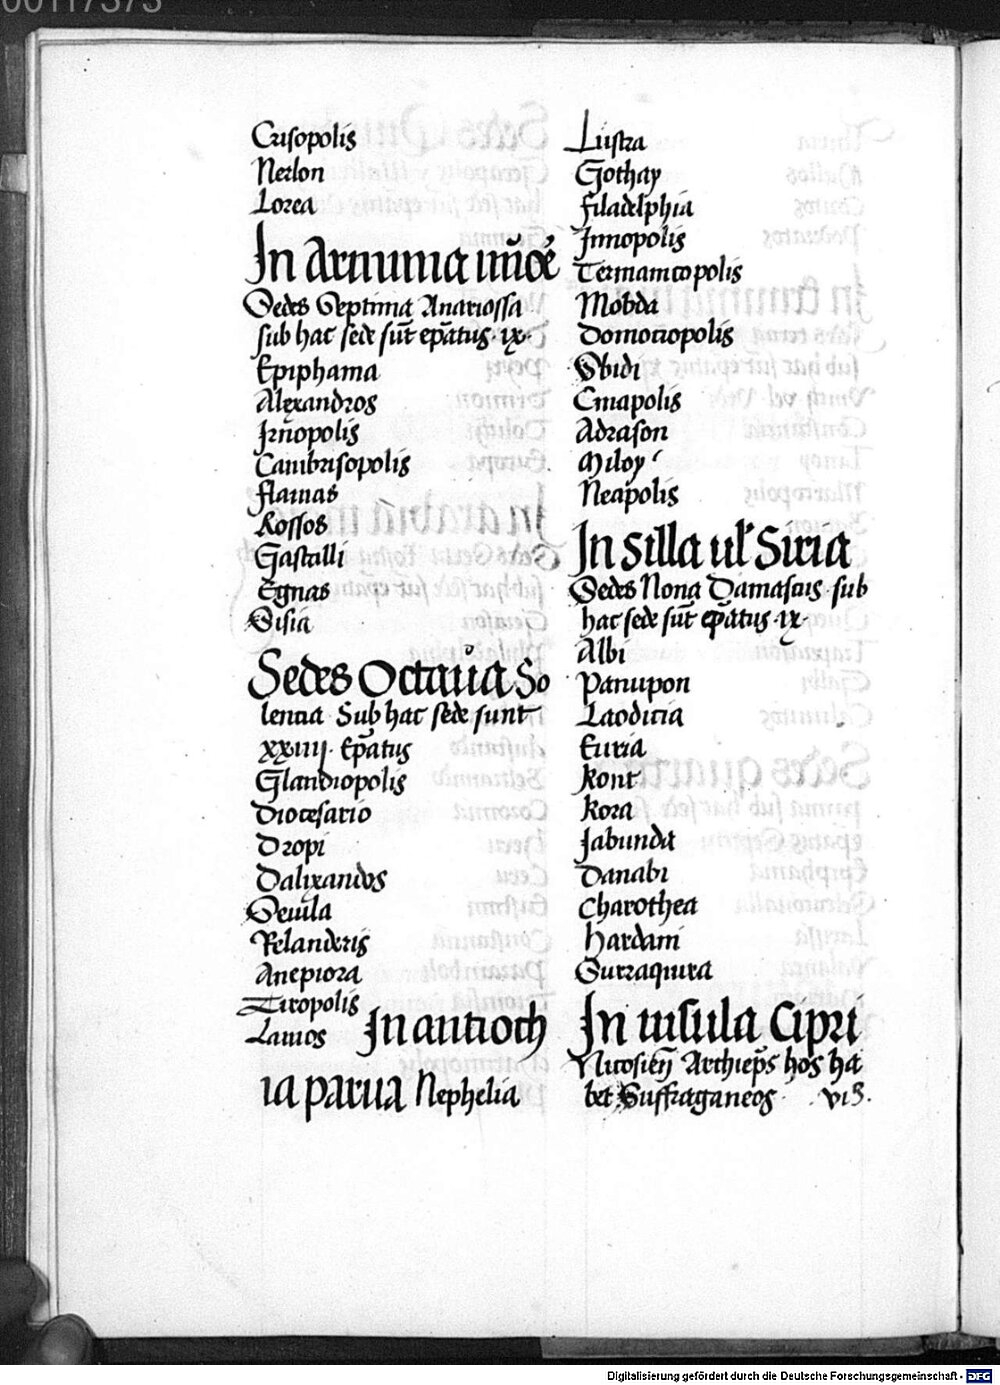 Crisopolis
Nerlon
Lorea
In Armunia mīoē
Sedes Septima Anariossa
sub hac sede sūt ep̄atus · ix ·
Epiphama
Alexandros
Irn̄opolis
Cambrisopolis
flamas
Rossos
Gastalli
Egnas
Sisia
Sedes Octaua So
lencia Sub hac sede sunt
xxiiii · Ep̄atus
Glandiopolis
Diocesario
Dropi
Dalixandos
Seuila
Pelanderis
Anepiora
Titopolis
Lamos In antioch
ia parua Nephelia
Lustra
Gothay
filadelphia
Jnnopolis
Termamcopolis
Mobda
Domociopolis
Sbidi
Cniapolis
Adrason
Miloy
Neapolis
In Silla ul' Siria
Sedes Nona Damascis sub
hac sede sūt ep̄atus · ix ·
Albi
Panupon
Laodicia
Euria
Kont
Kora
Jabunda
Danabi
Charothea
Hardani
Surraquira
In insula Cipri
Nicosien̄ Archiep̄s hos ha
bet Suffraganeos · viȝ.
Digitalisierung gefördert durch die Deutsche Forschungsgemeinschaft - DFG